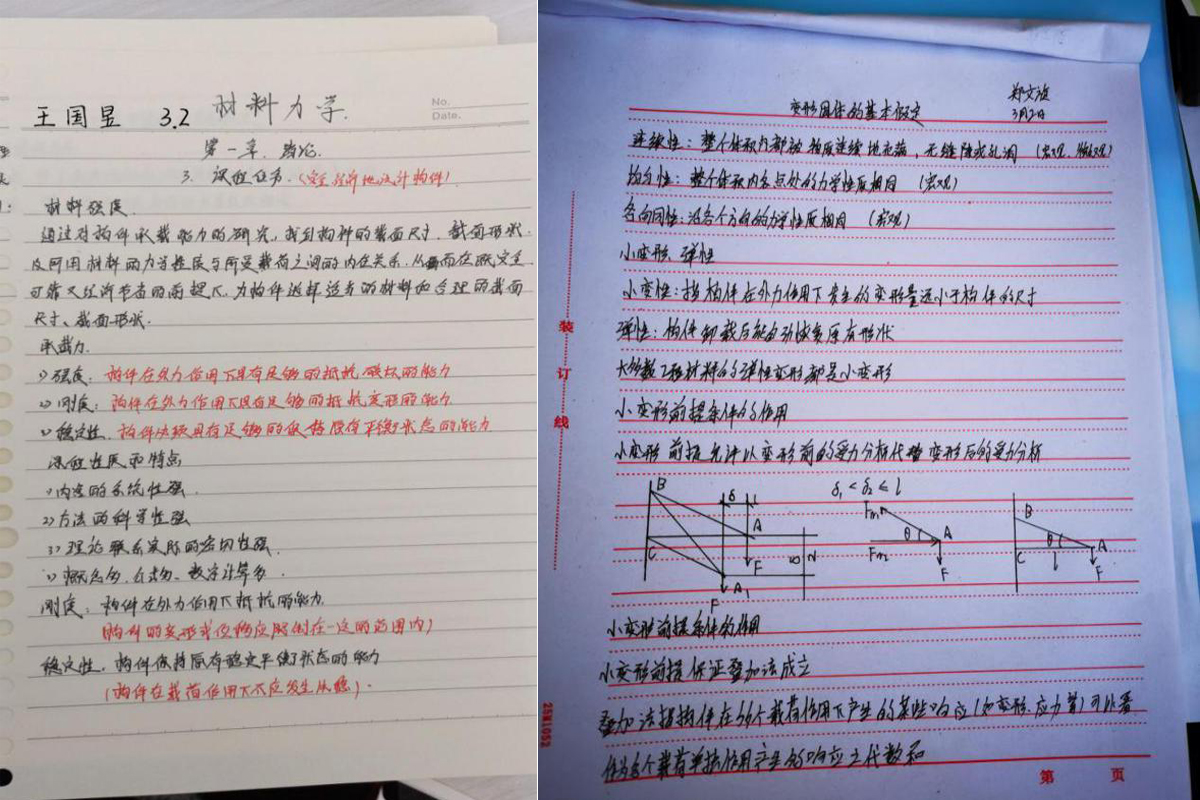 王国昱 3.2 材料力学
No.
Date.
第一章. 绪论.
3. 课程任务.(安全经济地设计构件)
材料强度.
通过对构件承载能力的研究,找到构件的截面尺寸、截面形状
及所用材料的力学性质与所受载荷之间的内在关系.从而在既安全
可靠又经济节省的前提下,为构件选择适当的材料和合理的截面
尺寸、截面形状.
承载力.
1)强度:构件在外力作用下具有足够的抵抗破坏的能力
2)刚度:构件在外力作用下具有足够的抵抗变形的能力
3)稳定性.构件必须具有足够的保持原有平衡状态的能力
课程性质和特点
1)内容的系统性强.
2)方法的科学性强
3)理论联系实际的密切性强.
4)概念多.公式多、数字计算多.
刚度:构件在外力作用下抵抗的能力
(构件的变形或位移应限制在一定的范围内)
稳定性.构件保持原有稳定平衡状态的能力
(构件在载荷作用下不应发生失稳).
郑文
3月2日
变形固体的基本假定
连续性:整个体积内都被物质连续地充满,无缝隙或孔洞(宏观、微观)
均匀性:整个体积内各点处的力学性质相同(宏观)
各向同性:沿各个方向的力学性质相同(宏观)
小变形、弹性
小变性:指构件在外力作用下发生的变形量远小于构件的尺寸
弹性:构件卸载后能自动恢复原有形状
大多数工程材料的弹性变形都是小变形
小变形前提条件的作用
小变形前提允许以变形前的受力分析代替变形后的受力分析
δ₁<δ₂≤l
B δ A C F A₁ F N
Fₙ₁ θ A Fₙ₂ F
B θ A C l F
小变形前提条件的作用
小变形前提保证叠加法成立
叠加法指构件在多个载荷作用下产生的某些响应(如变形、应力等)可以看
作为各个载荷单独作用产生的响应之代数和
装
订
线
25K1052
第 页